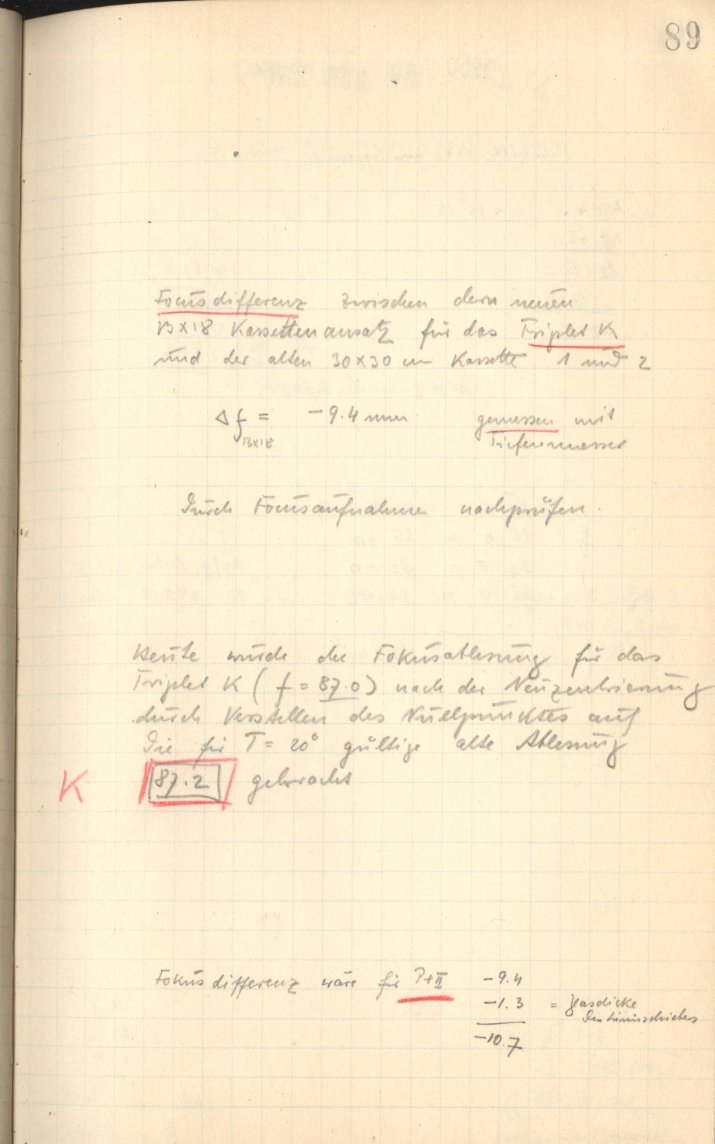 89
Focusdifferenz zwischen dem neuen
13x18 Kassettenansatz für das Triplet K
und der alten 30x30 cm Kassette 1 und 2
Δf 13x18 = -9.4 mm gemessen mit
Tiefenmesser
Durch Focusaufnahmen nachprüfen.
Heute wurde die Fokusablesung für das
Triplet K (f = 87.0) nach der Neuzentrierung
durch Verstellen des Nullpunktes auf
die für T = 20° gültige alte Ablesung
K 87.2 gebracht
Fokusdifferenz wäre für P+II -9.4
-1.3 = Glasdicke
-10.7